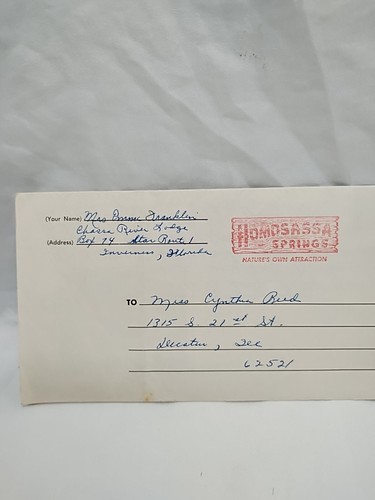 (Your Name) Mrs Emma Franklin
Chassa River Lodge
(Address) Box 74 Star Route 1
Inverness, Florida
HOMOSASSA
SPRINGS
NATURE'S OWN ATTRACTION
TO Miss Cynthia Reed
1315 S. 21st St.
Decatur, Ill
62521